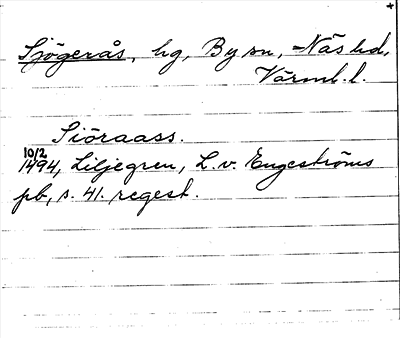 +
Sjögerås, hg, By sn, =Näs hd,
Värml. l.
Siöraass.
10/2
1494, Liljegren, L. v. Engeströms
pb, s. 41. regest.